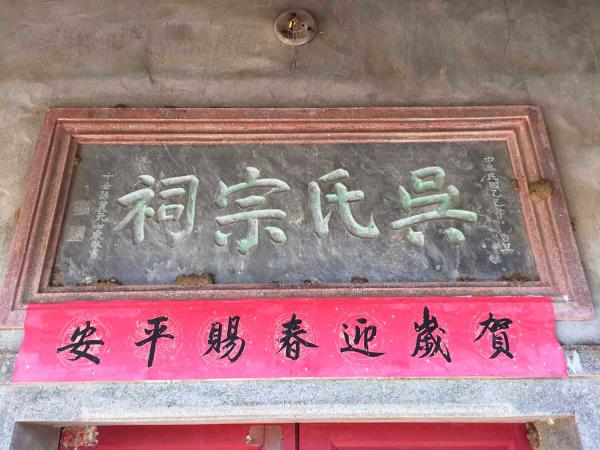 吳氏宗祠
中華民國乙巳年
賀歲迎春賜平安